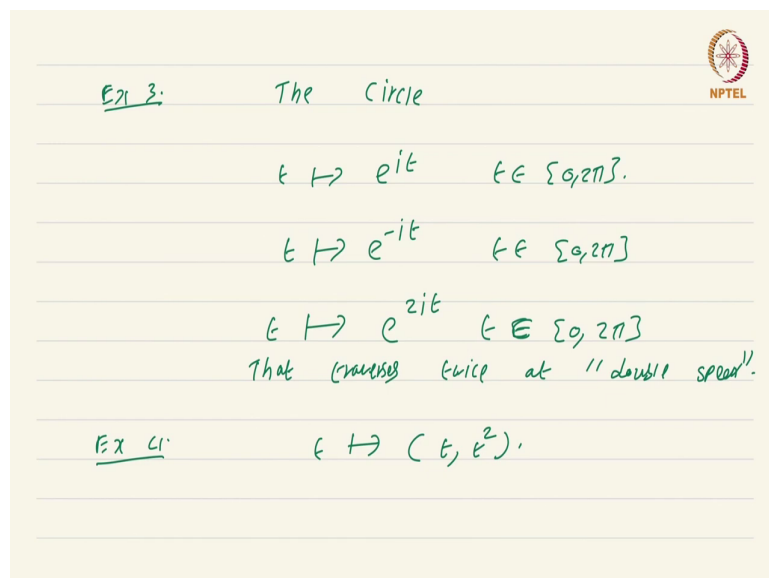 NPTEL
Ex 3. The Circle
t ↦ e^{it} t ∈ [0,2π].
t ↦ e^{-it} t ∈ [0,2π]
t ↦ e^{2it} t ∈ [0, 2π]
That traverses twice at "double speed".
Ex 4. t ↦ (t, t²).